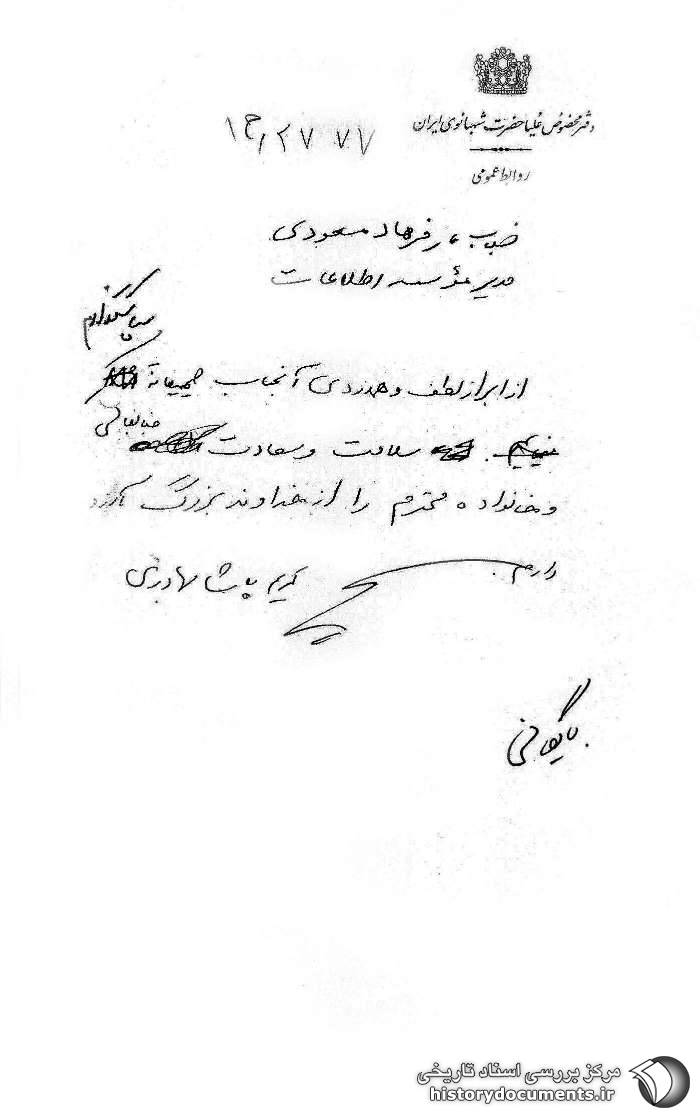 دفتر مخصوص علیاحضرت شهبانوی ایران
روابط عمومی
جناب آقای فرهاد مسعودی
مدیر مؤسسه اطلاعات
از ابراز لطف و همدردی آنجناب صمیمانه سپاسگزارم
سلامت و سعادت جنابعالی
و خانواده محترم را از خداوند بزرگ آرزو
دارم.
کریم پاشا بهادری
بایگانی
مرکز بررسی اسناد تاریخی
historydocuments.ir